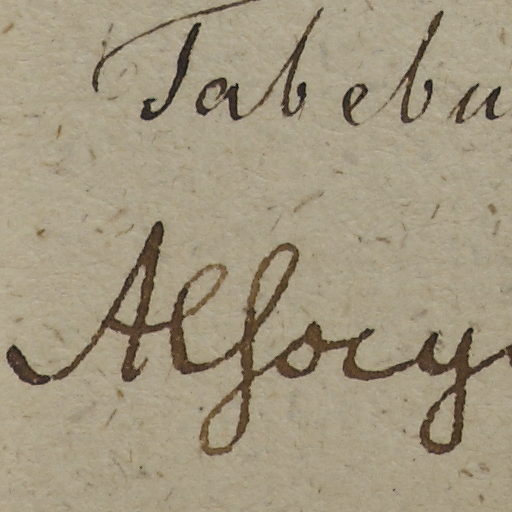 Tabebu
Alsocy